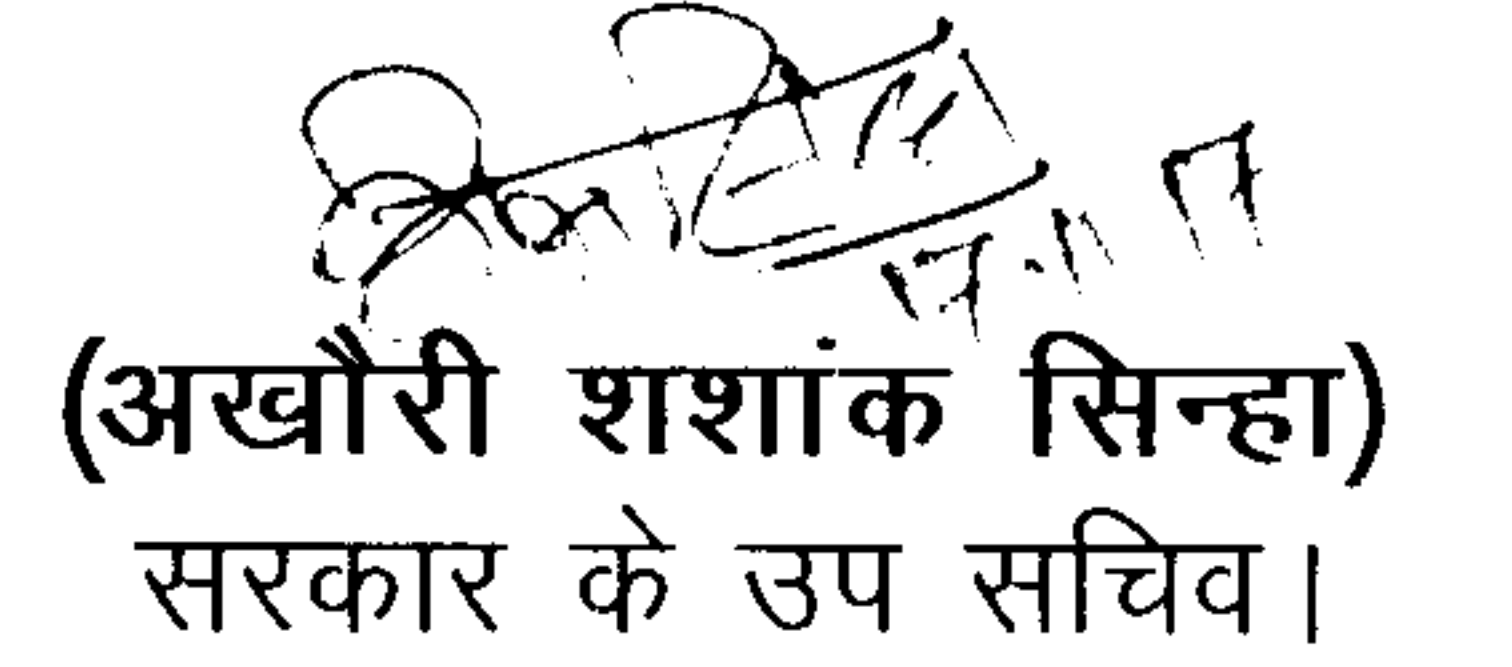 (अखौरी शशांक सिन्हा)
सरकार के उप सचिव।